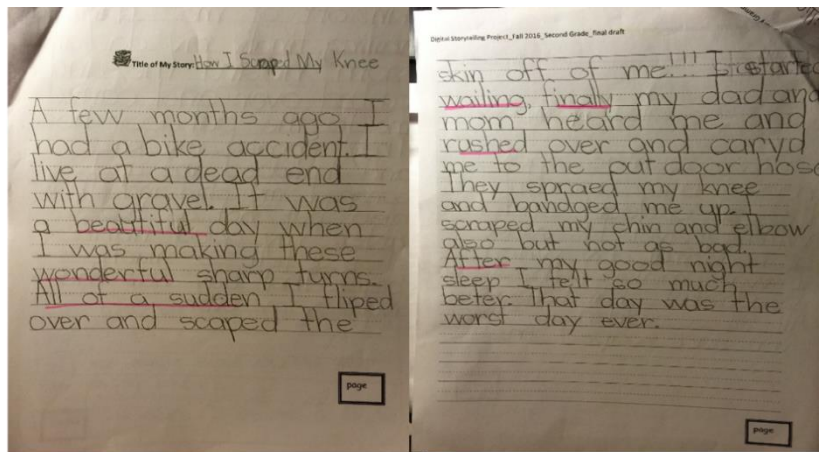 Title of My Story: How I Scraped My Knee
A few months ago I
had a bike accident. I
live at a dead end
with gravel. It was
a beautiful day when
I was making these
wonderful sharp turns.
All of a sudden I fliped
over and scaped the
page
Digital Storytelling Project_Fall 2016_Second Grade_final draft
skin off of me!!! I started
wailing, finally my dad and
mom heard me and
rushed over and caryd
me to the out door hose
They spraed my knee
and bandged me up. I
scraped my chin and elbow
also but not as bad.
After my good night
sleep I felt so much
beter. That day was the
worst day ever.
page